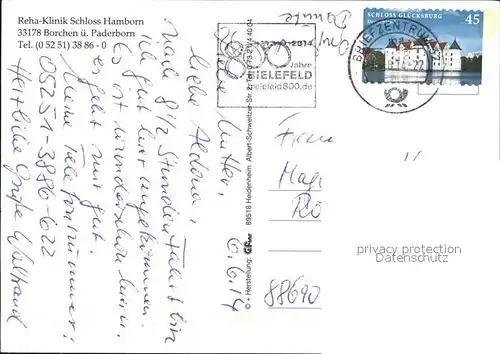 Reha-Klinik Schloss Hamborn
33178 Borchen ü. Paderborn
Tel. (0 52 51) 38 86 - 0
6.6.14
Liebe Mutter,
liebe Aldona,
nach 8 1/2 Stunden Fahrt bin
ich gut hier angekommen.
Es ist wunderschön hier.
Es geht mir gut.
Meine Telefonnummer:
05251-3886-622
Herzliche Grüße Waltraud
© + Herstellung:
89518 Heidenheim Albert-Schweitzer-Str. 2, Tel. 0 73 21/4 40 04
800
Jahre
BIELEFELD
bielefeld800.de
BRIEFZENTRUM
SCHLOSS GLÜCKSBURG
45
Frau
88690
privacy protection
Datenschutz